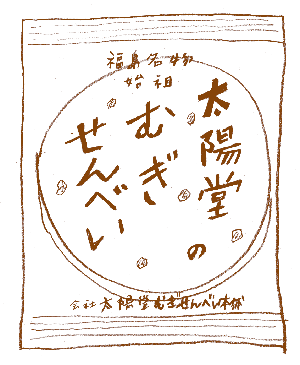 福島名物
始祖
太陽堂の
むぎ
せんべい
会社 太陽堂むぎせんべい本舗